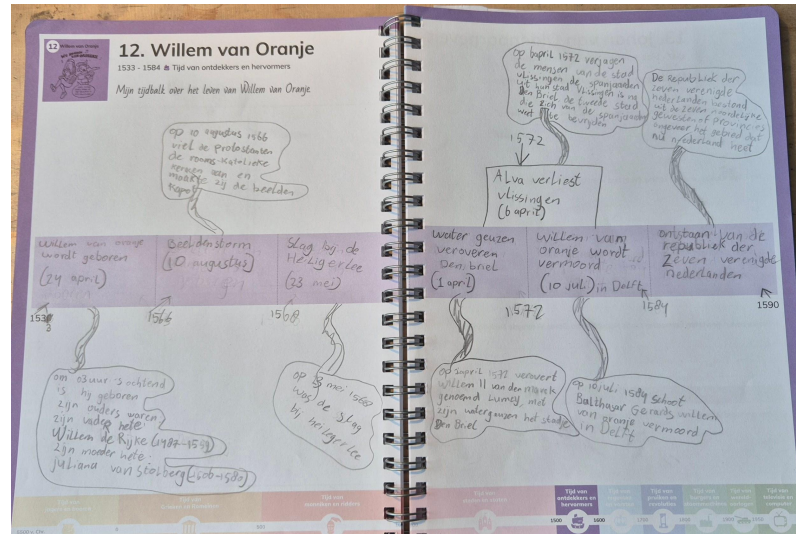 12 Willem van Oranje
12. Willem van Oranje
1533 - 1584 Tijd van ontdekkers en hervormers
Mijn tijdbalk over het leven van Willem van Oranje
op 10 augustus 1566
viel de protostansen
de rooms-katolieke
kerken aan en
maakte zij de beelden
kapot
Willem van oranje
wordt geboren
(24 april)
Beeldensterm
(10 augustus)
Slag bij de
Heiligerlee
(23 mei)
1533
1566
1568
om 03 uur 's ochtend
is hij geboren
zijn ouders waren
zijn vader hete:
Willem de Rijke (1487-1559)
zijn moeder hete:
juliana van stolberg (1506-1580)
op 23 mei 1568
was de slag
bij heiligerlee
op 6april 1572 verjagen
de mensen van de stad
vlissingen de spanjaarden
uit hun stad vlissingen is na
Den Briel de tweede stad
die zich van de spanjaarden
weet te bevrijden
De Republiek der
zeven verenigde
nederlanden bestond
uit de zeven noordelijke
gewesten of provincies
ongeveer het gebied dat
nu nederland heet
1572
Alva verliest
vlissingen
(6 april)
water geuzen
veroveren
Den briel
(1 april)
willem van
oranje wordt
vermoord
(10 juli) in Delft
ontstaan van de
republiek der
Zeven verenigde
nederlanden
1572
1584
1590
op 1april 1572 verovert
willem II van der marck
genoemd Lumey met
zijn watergeuzen het stadje
Den Briel
op 10 juli 1584 schoot
Balthasar Gerards willem
van oranje vermoord
in Delft
Tijd van
ontdekkers en
hervormers
1500
1600